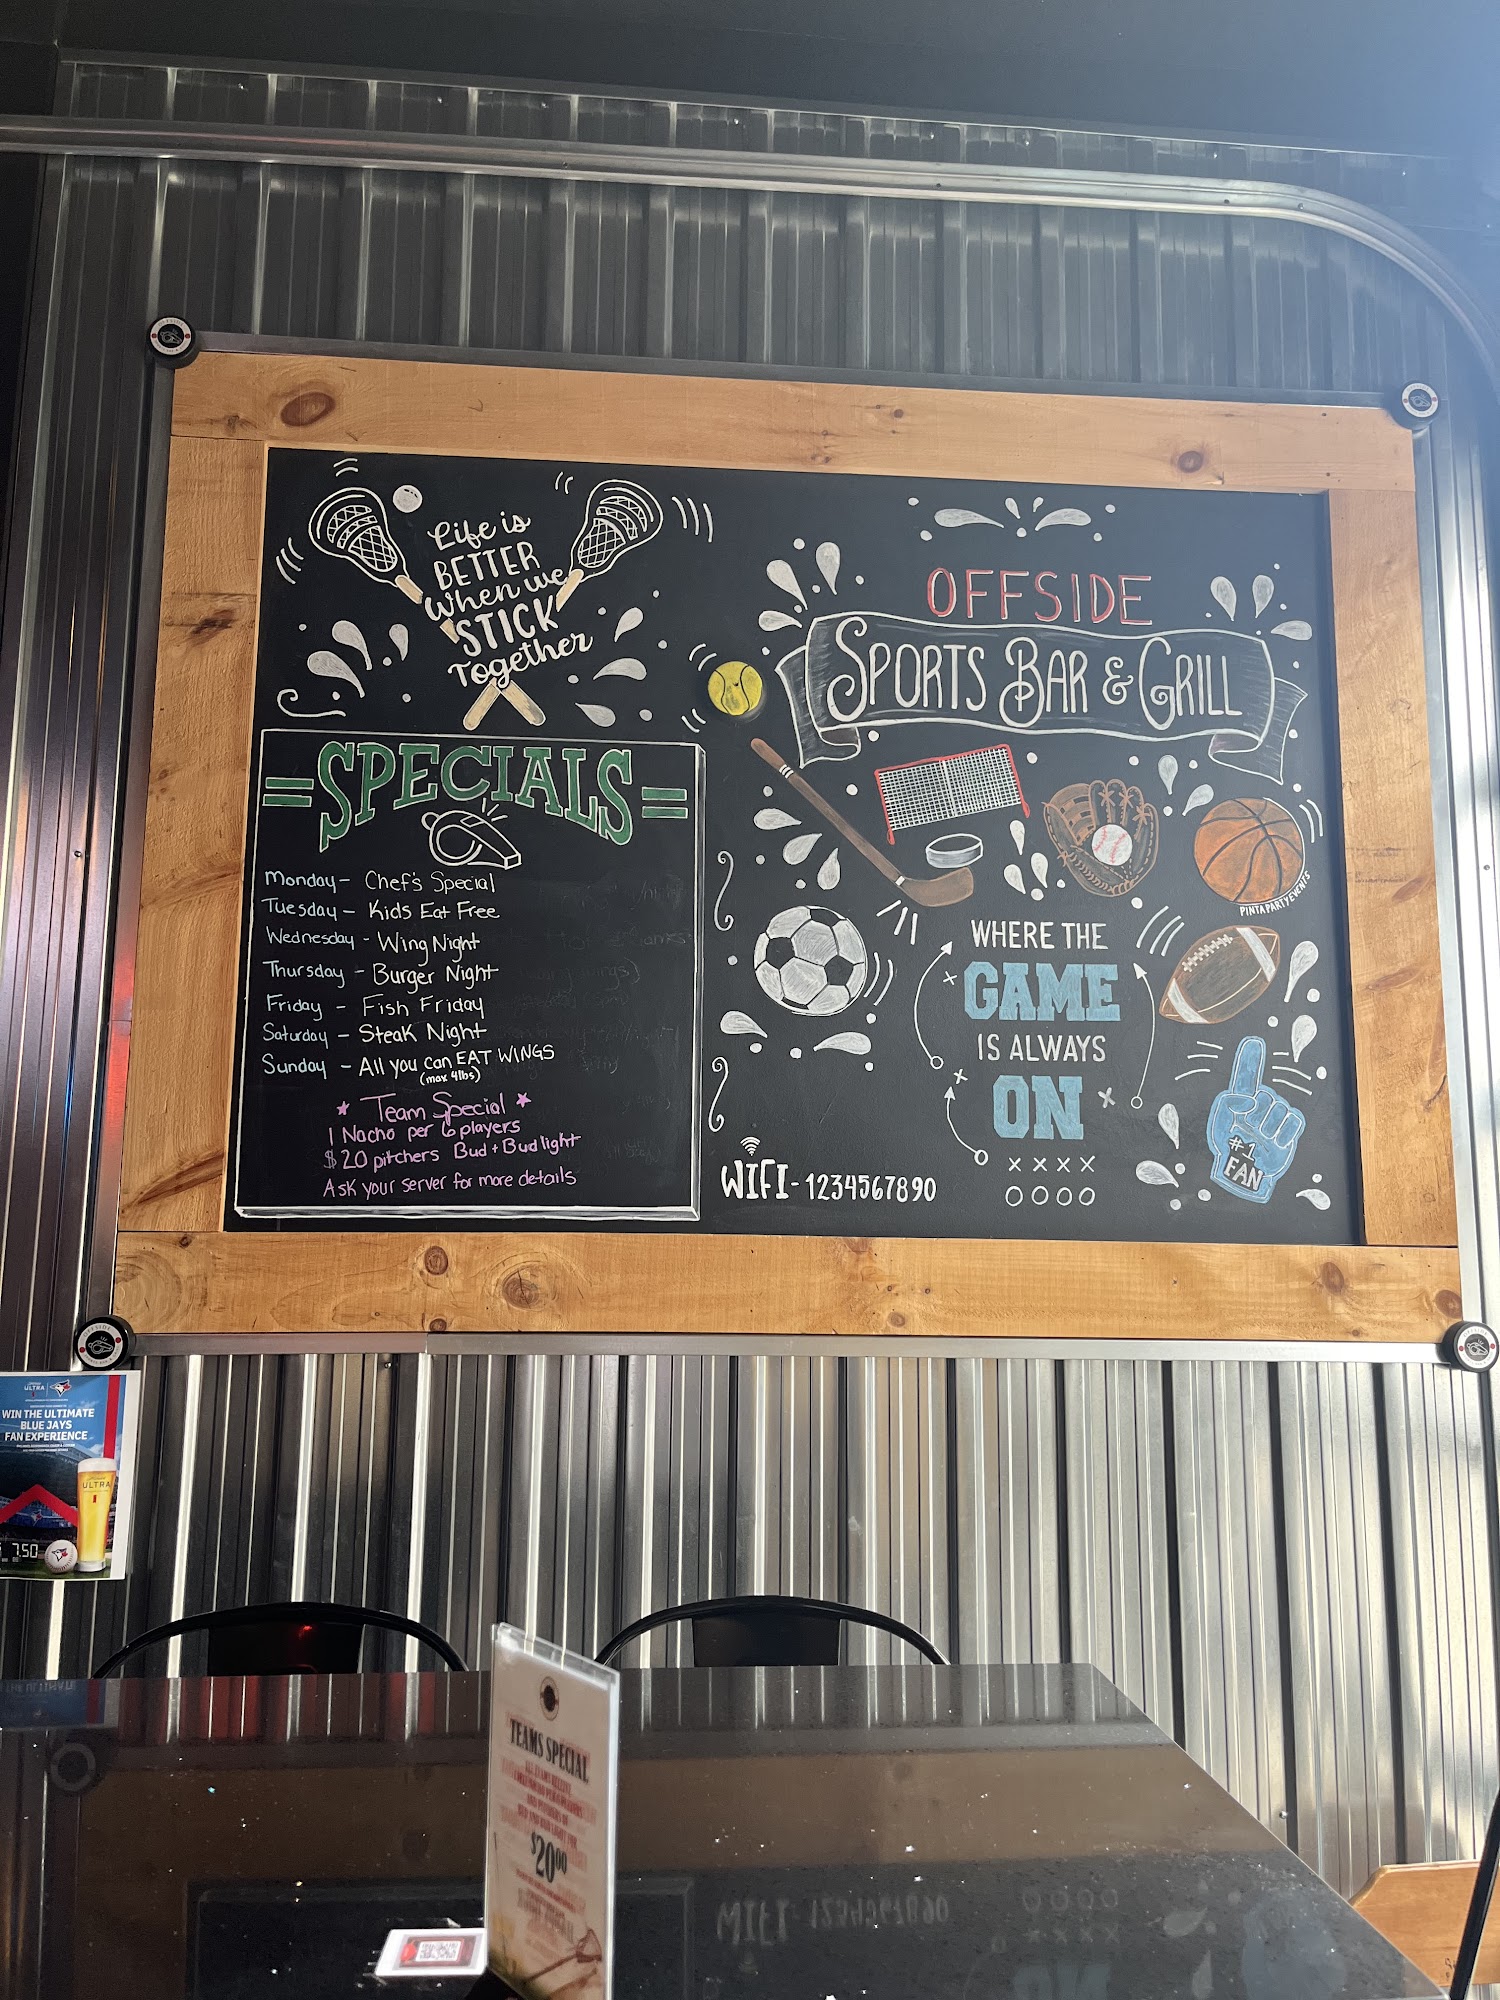 Life is
BETTER
when we
STICK
Together
OFFSIDE
SPORTS BAR & GRILL
=SPECIALS=
Monday - Chef's Special
Tuesday - Kids Eat Free
Wednesday - Wing Night
Thursday - Burger Night
Friday - Fish Friday
Saturday - Steak Night
Sunday - All you can EAT WINGS
(max 4lbs)
Team Special
1 Nacho per 6 players
$20 pitchers Bud + Bud light
Ask your server for more details
PINTAPARTYEVENTS
WHERE THE
GAME
IS ALWAYS
ON
x x x x
O O O O
#1
FAN
WIFI - 1234567890
ULTRA
WIN THE ULTIMATE
BLUE JAYS
FAN EXPERIENCE
ULTRA
7.50
TEAMS SPECIAL
$20.00